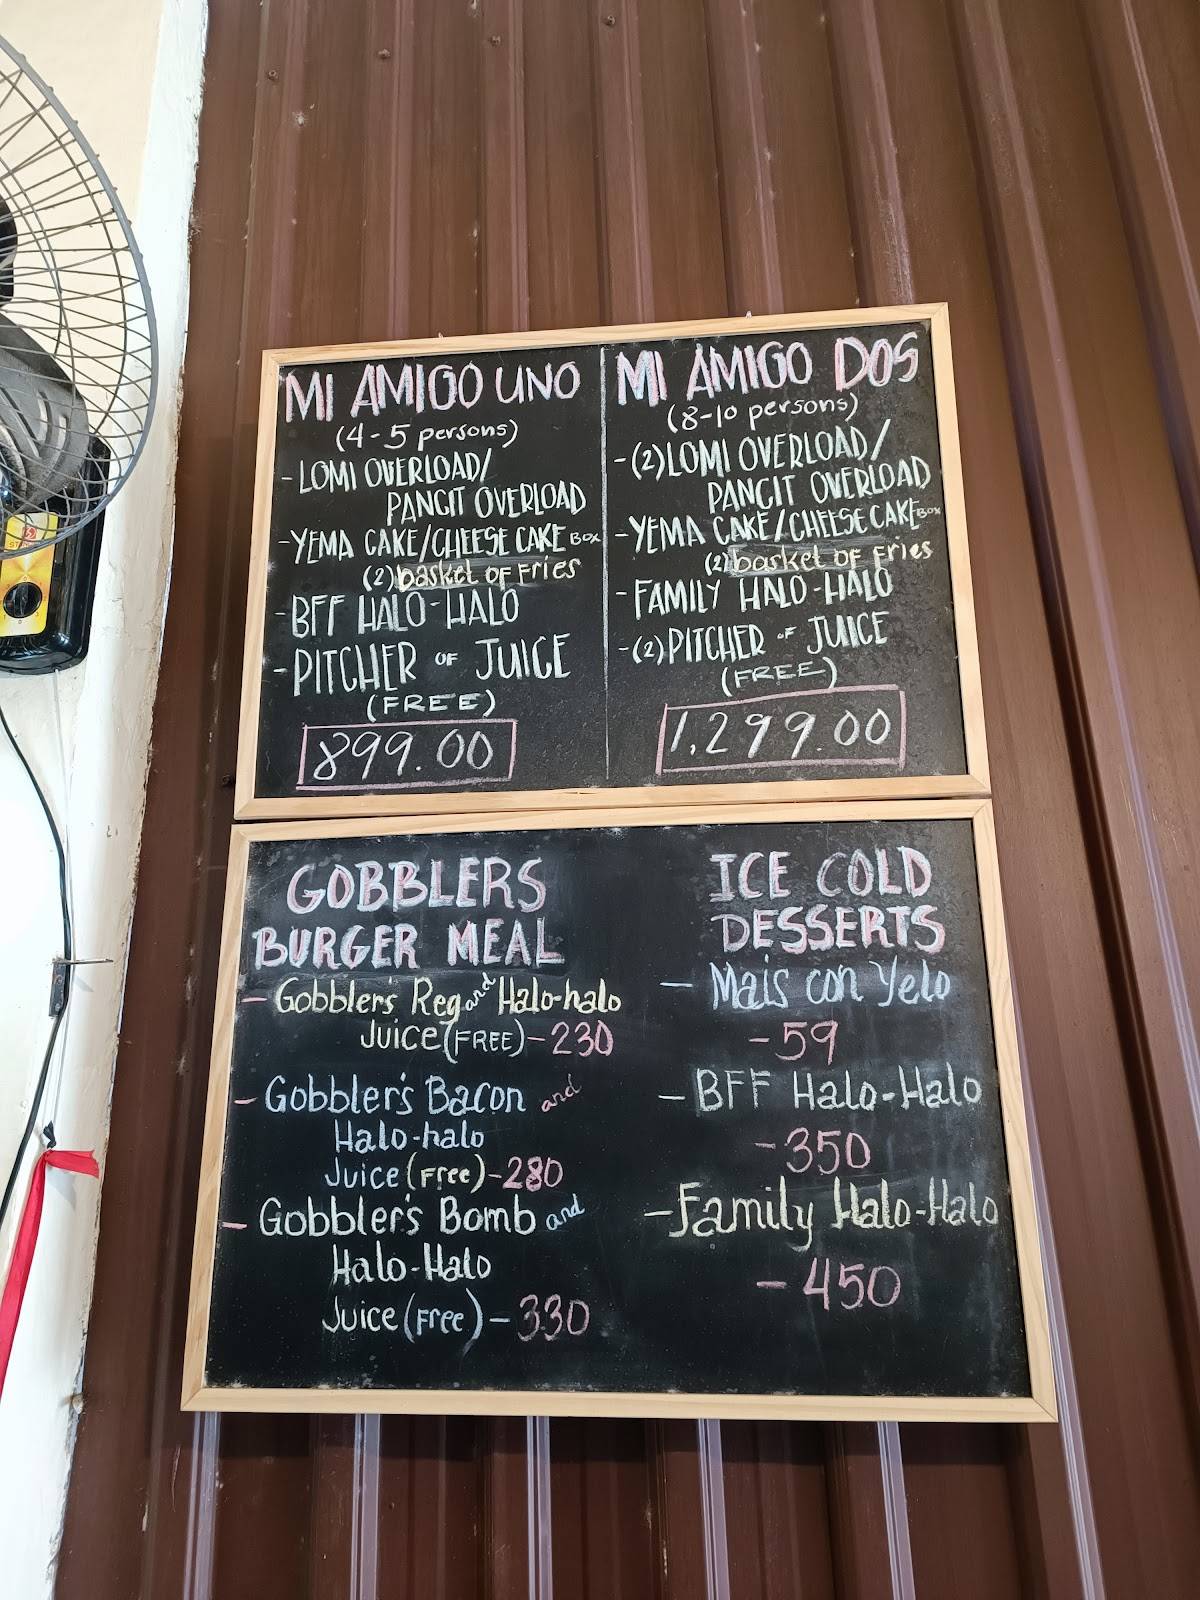 MI AMIGO UNO
(4-5 persons)
- LOMI OVERLOAD/
PANCIT OVERLOAD
- YEMA CAKE/CHEESE CAKE BOX
(2) basket OF Fries
- BFF HALO-HALO
- PITCHER OF JUICE
(FREE)
899.00
MI AMIGO DOS
(8-10 persons)
- (2) LOMI OVERLOAD/
PANCIT OVERLOAD
- YEMA CAKE/CHEESE CAKE BOX
(2) basket of Fries
- FAMILY HALO-HALO
- (2) PITCHER OF JUICE
(FREE)
1,299.00
GOBBLERS
BURGER MEAL
- Gobbler's Reg and Halo-halo
Juice (FREE) - 230
- Gobbler's Bacon and
Halo-halo
Juice (Free) - 280
- Gobbler's Bomb and
Halo-Halo
Juice (Free) - 330
ICE COLD
DESSERTS
- Mais con Yelo
- 59
- BFF Halo-Halo
- 350
- Family Halo-Halo
- 450